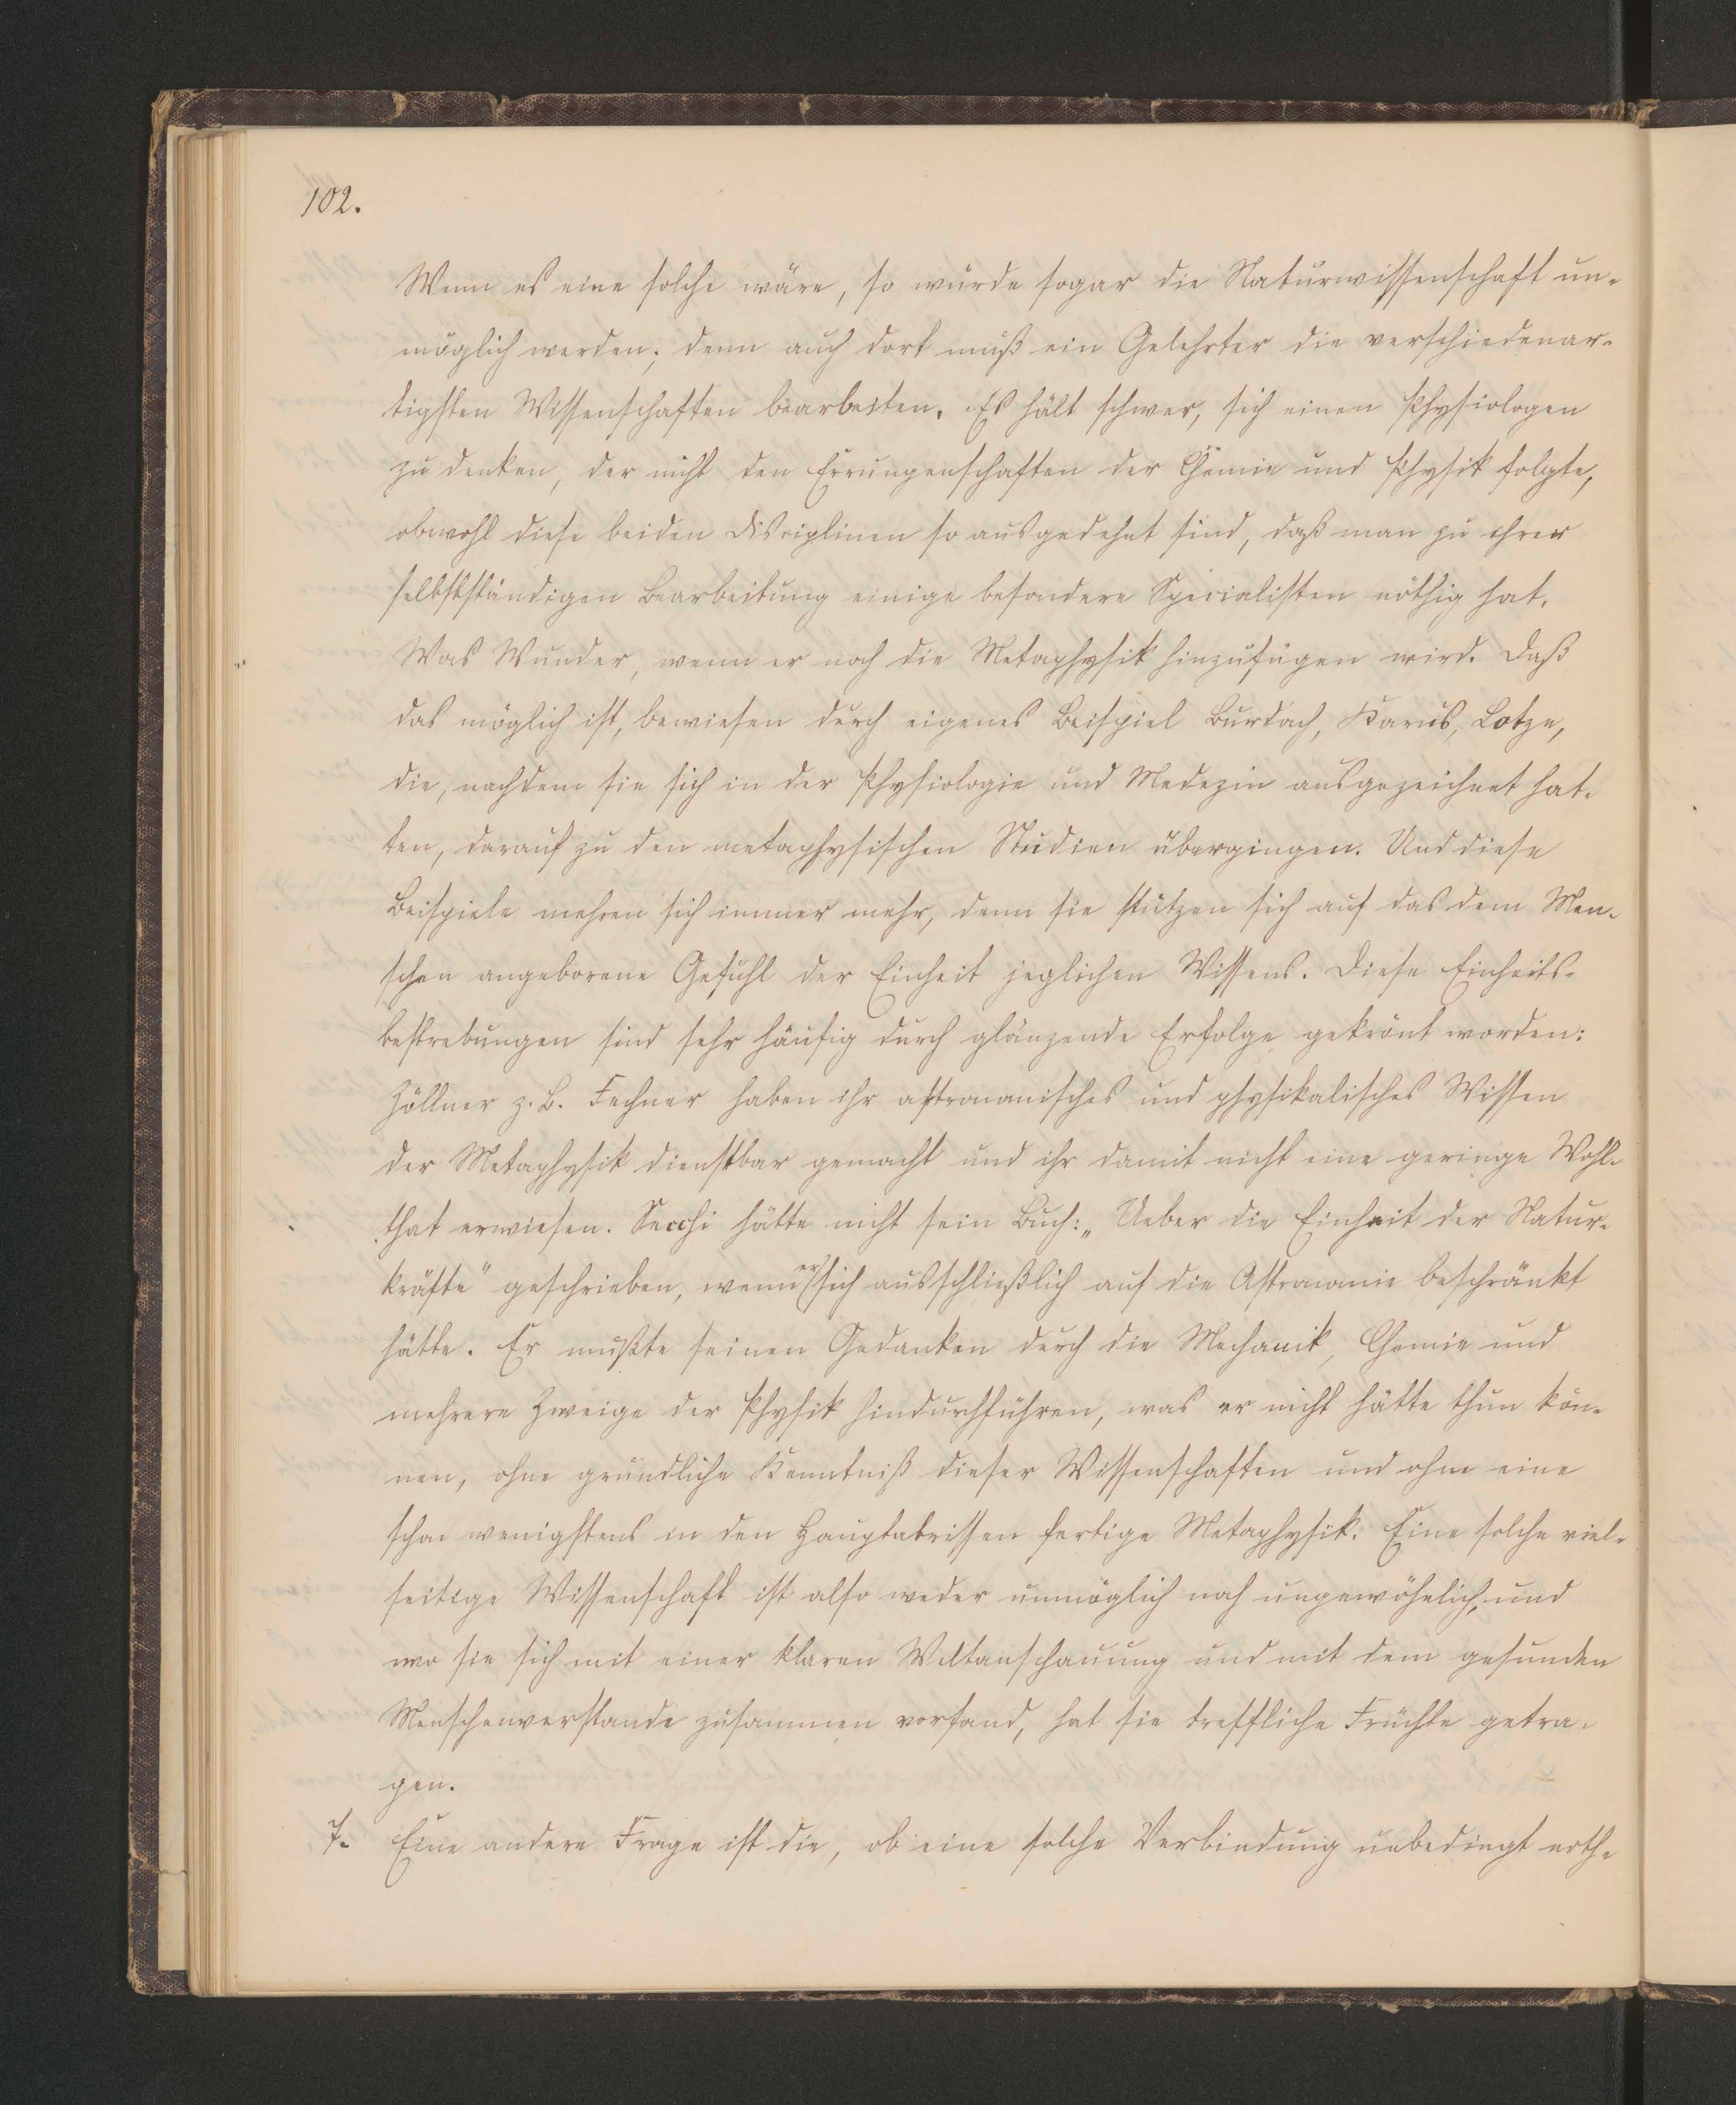 102.
Wenn es eine solche wäre, so würde sogar die Naturwissenschaft un-
möglich werden; denn auch dort muß ein Gelehrter die verschiedenar-
tigsten Wissenschaften bearbeiten. Es hält schwer, sich einen Physiologen
zu denken, der nicht den Errungenschaften der Chemie und Physik folgte,
obwohl diese beiden Disciplinen so ausgedehnt sind, daß man zu ihrer
selbstständigen Bearbeitung einige besondere Specialisten nöthig hat.
Was Wunder, wenn er noch die Metaphysik hinzufügen wird. Daß
das möglich ist, bewiesen durch eigenes Beispiel Burdach, Karus, Lotze,
die, nachdem sie sich in der Physiologie und Medezin ausgezeichnet hat-
ten, darauf zu den metaphysischen Studien übergingen. Und diese
Beispiele mehren sich immer mehr, denn sie stützen sich auf das dem Men-
schen angeborene Gefühl der Einheit jeglichen Wissens. Diese Einheits-
bestrebungen sind sehr häufig durch glänzende Erfolge gekrönt worden:
Zöllner z. B. Fechner haben ihr astronomisches und physikalisches Wissen
der Metaphysik dienstbar gemacht und ihr damit nicht eine geringe Wohl-
that erwiesen. Secchi hätte nicht sein Buch: „Ueber die Einheit der Natur-
kräfte" geschrieben, wenn er sich ausschließlich auf die Astronomie beschränkt
hätte. Er mußte seinen Gedanken durch die Mechanik, Chemie und
mehrere Zweige der Physik hindurchführen, was er nicht hätte thun kön-
nen, ohne gründliche Kenntniß dieser Wissenschaften und ohne eine
schon wenigstens in den Hauptabrissen fertige Metaphysik. Eine solche viel-
seitige Wissenschaft ist also weder unmöglich noch ungewöhnlich, und
wo sie sich mit einer klaren Weltanschauung und mit dem gesunden
Menschenverstande zusammen vorfand, hat sie treffliche Früchte getra-
gen.
7. Eine andere Frage ist die, ob eine solche Verbindung unbedingt noth-